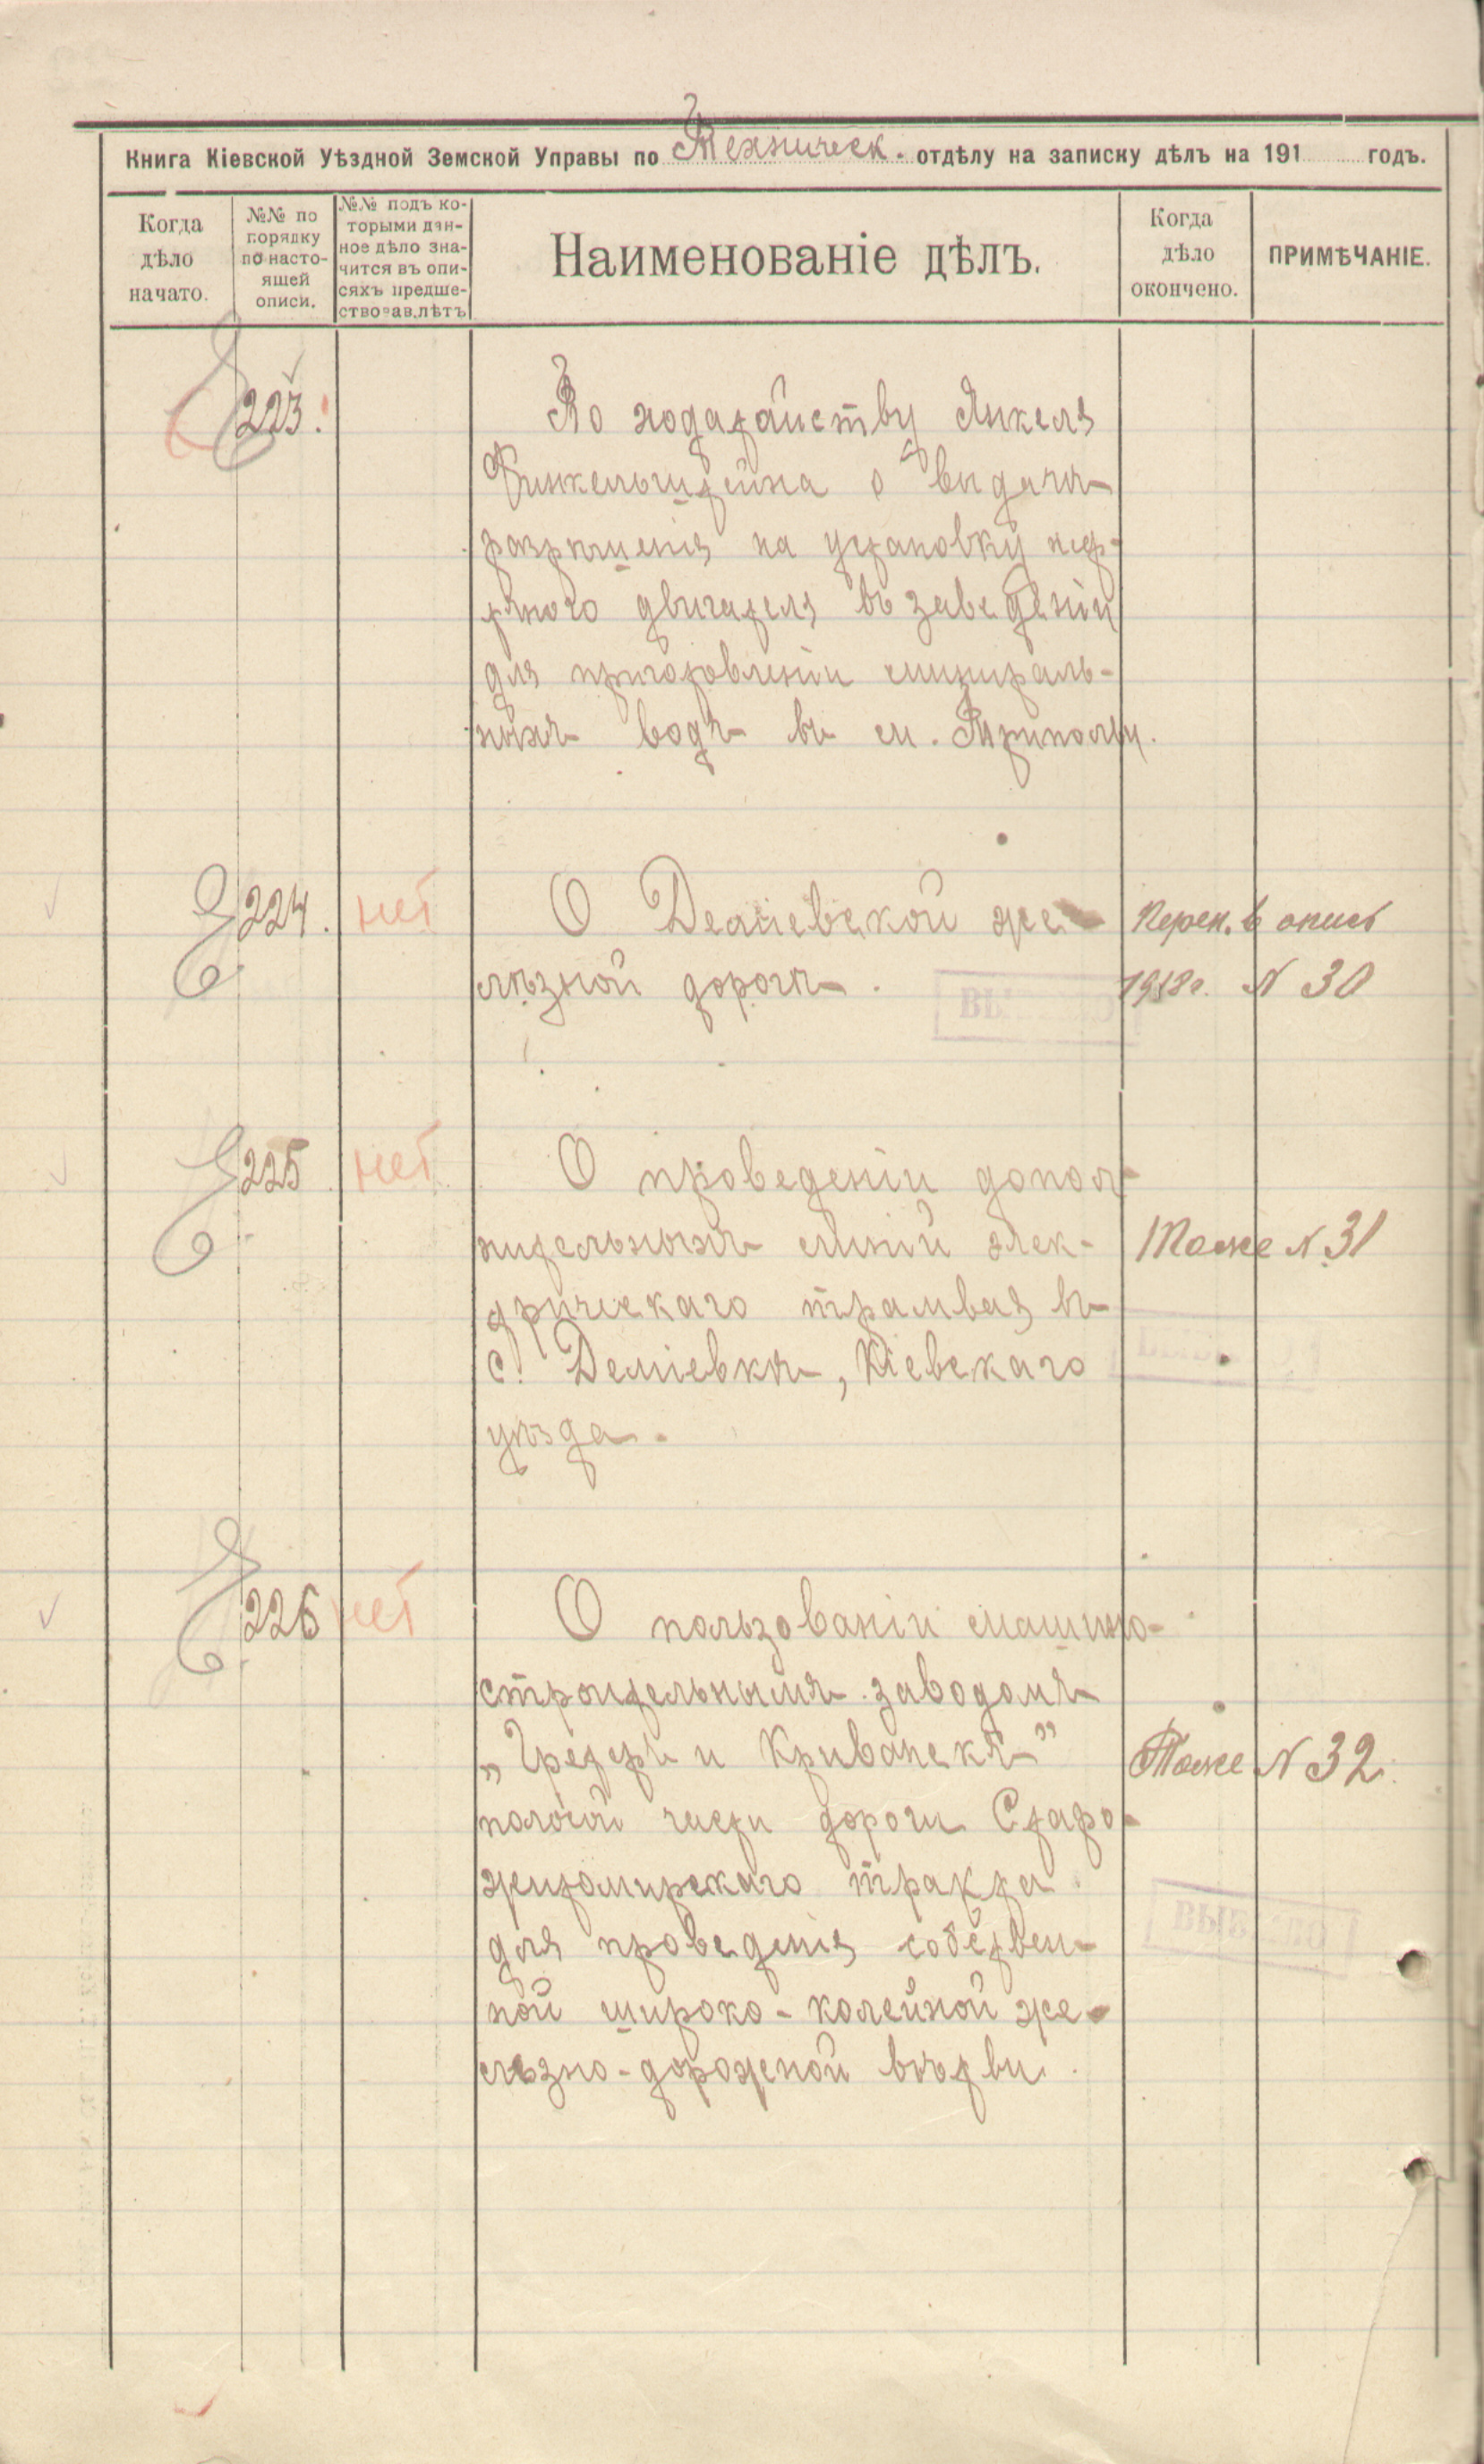 Книга Кіевской Уѣздной Земской Управы по Техническ. отдѣлу на записку дѣлъ на 191 годъ.
Когда дѣло начато.
№№ по порядку по насто-ящей описи.
№№ подъ ко-торыми дан-ное дѣло зна-чится въ опи-сяхъ предше-ствовав.лѣтъ
Наименованіе дѣлъ.
Когда дѣло окончено.
ПРИМѢЧАНІЕ.
223.
По ходатайству Янкеля
Финкельштейна о выдачѣ
разрѣшенія на установку неф-
тяного двигателя въ заведеніи
для приготовленіи минираль-
ныхъ водъ въ м. Трипольи.
224. нет
О Деміевской же-
лѣзной дорогѣ.
Перен. в опись
1918г. № 30
225 нет
О проведеніи допол-
нительныхъ линій элек-
трическаго трамвая въ
с. Деміевкѣ, Кіевскаго
уѣзда.
Тоже № 31
226 нет
О пользованіи машино-
строительнымъ заводомъ
„Гретеръ и Криванекъ"
полосой части дороги Старо-
житомирскаго тракта
для проведенія собствен-
ной широко-колейной же-
лѣзно-дорожной вѣтви.
Тоже № 32